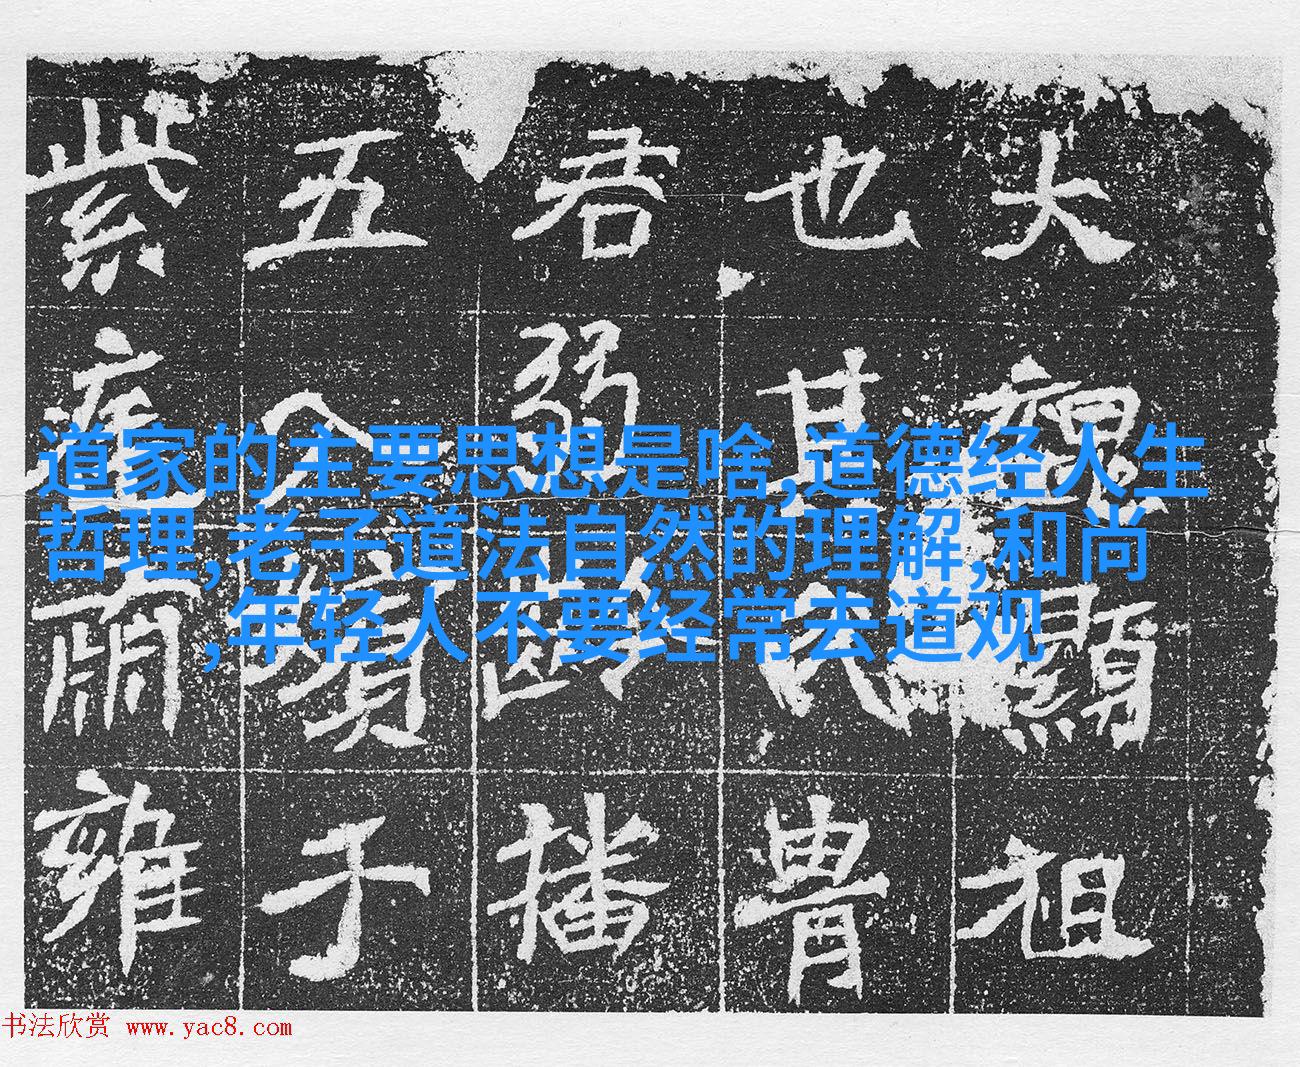 道家的主要思想是啥,道德经人生
哲理,老子道法自然的理解,和尚
,年轻人不要经常去道观
大魏顯祖
也其氏胄
君弱齡播
五入嬪子
紫庭雍
书法欣赏 www.yac8.com